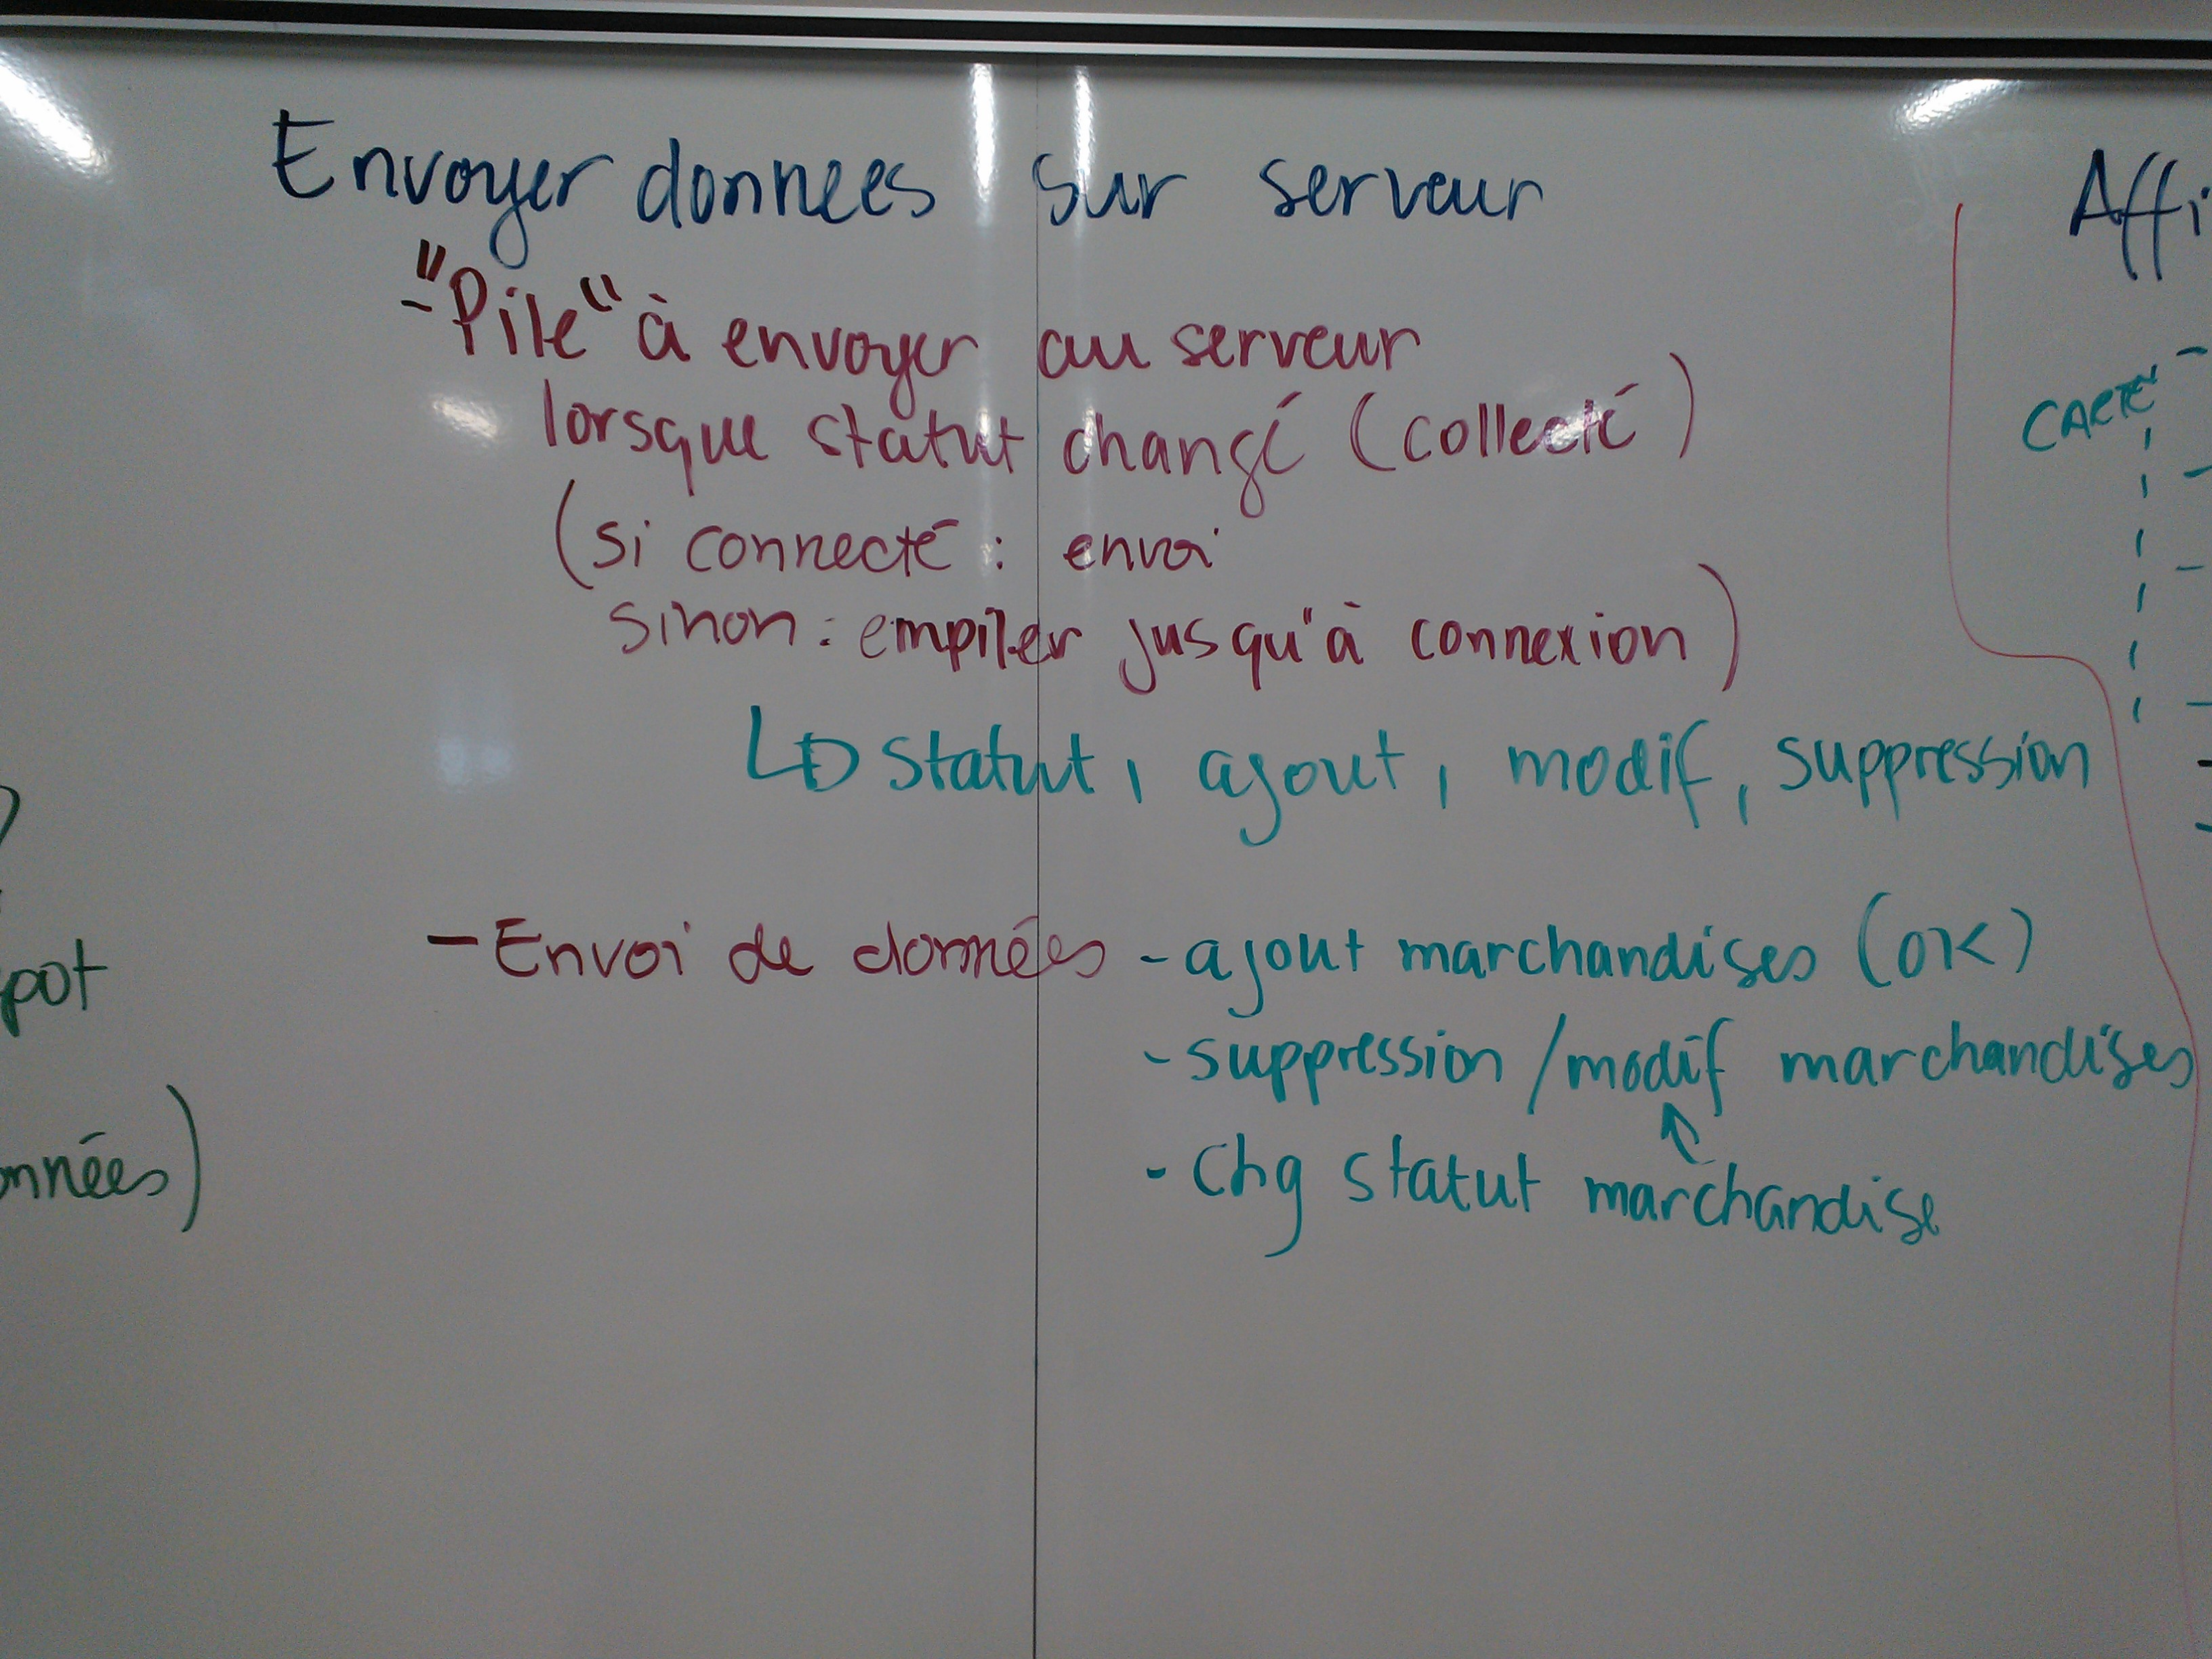 Envoyer donnees sur serveur
- "Pile" à envoyer au serveur
lorsque statut changé (collecté)
(si connecté : envoi
sinon : empiler jusqu'à connexion)
↳ statut, ajout, modif, suppression
- Envoi de données - ajout marchandises (OK)
- suppression / modif marchandises
- Chg statut marchandise
pot
nnées)
Affi
CARTE